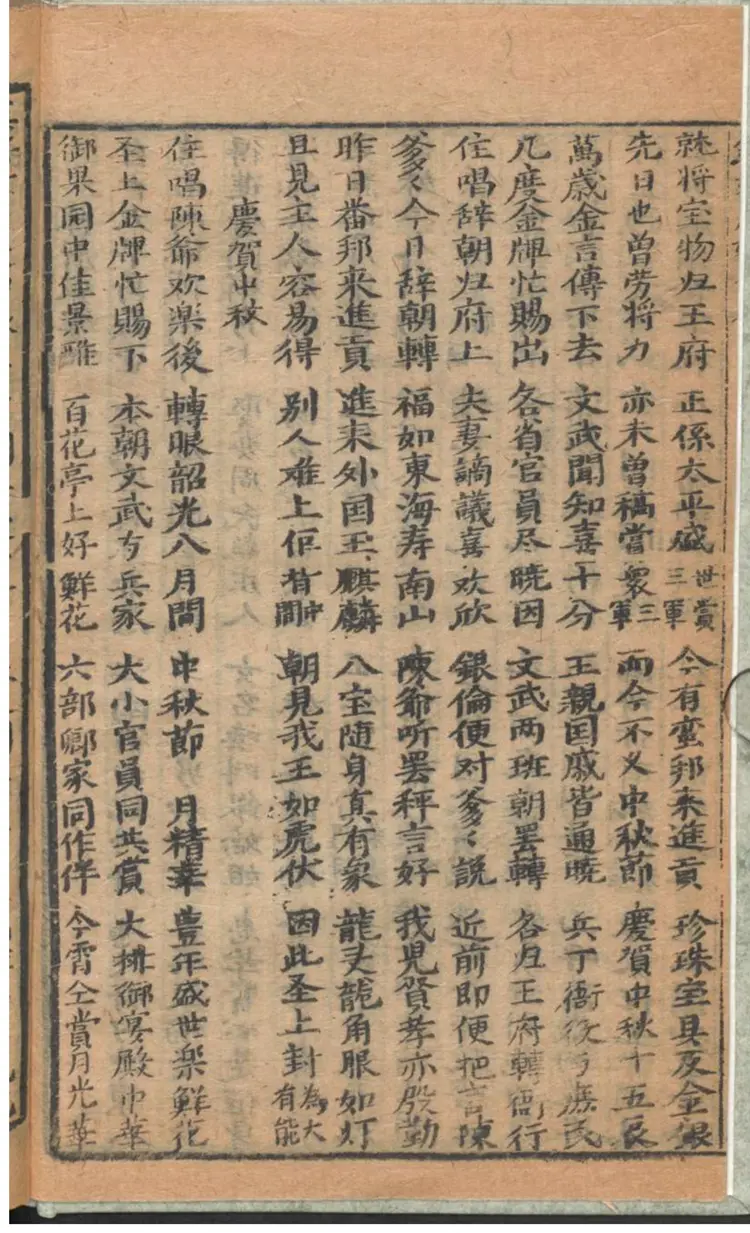 就将宝物归王府 正係太平盛世賞三軍 今有蛮邦来進貢 珍珠宝具及金银
先日也曾劳将力 亦未曾稿賞衆三軍 而今不义中秋節 慶賀中秋十五辰
萬歳金言傳下去 文武聞知喜十分 王親囯戚皆通曉 兵丁衙役与庶民
几度金牌忙賜出 各省官員尽曉因 文武两班朝罢轉 各归王府轉衙行
住唱辞朝归府上 夫妻謫議喜欢欣 銀倫便对爹〻説 近前即便把言陳
爹〻今日辞朝轉 福如東海寿南山 陳爺听罢秤言好 我児贤孝亦殷勤
昨日番邦来進貢 進来外囯玉麒麟 八宝随身真有象 龍头龍角眼如灯
且見主人容易得 别人难上佢身 朝見我王如虎伏 因此圣上封為大有能
慶賀中秋
住唱陳爺欢楽後 轉眼韶光八月間 中秋節 月精華 豊年盛世楽鮮花
圣上金牌忙賜下 本朝文武与兵家 大小官員同共賞 大排御宴殿中華
御果园中佳景雅 百花亭上好鮮花 六部卿家同作伴 今霄仝賞月光華